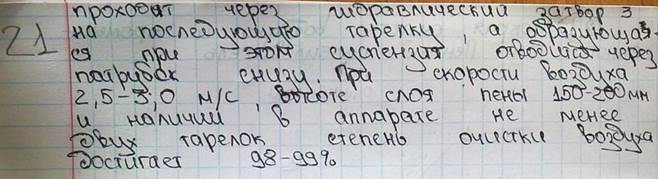 21
проходят через гидравлический затвор 3
на последующую тарелку, а образующая-
ся при этом суспензия отводится через
патрубок снизу. При скорости воздуха
2,5-3,0 м/с, высоте слоя пены 150-200мм
и наличии в аппарате не менее
двух тарелок степень очистки воздуха
достигает 98-99%